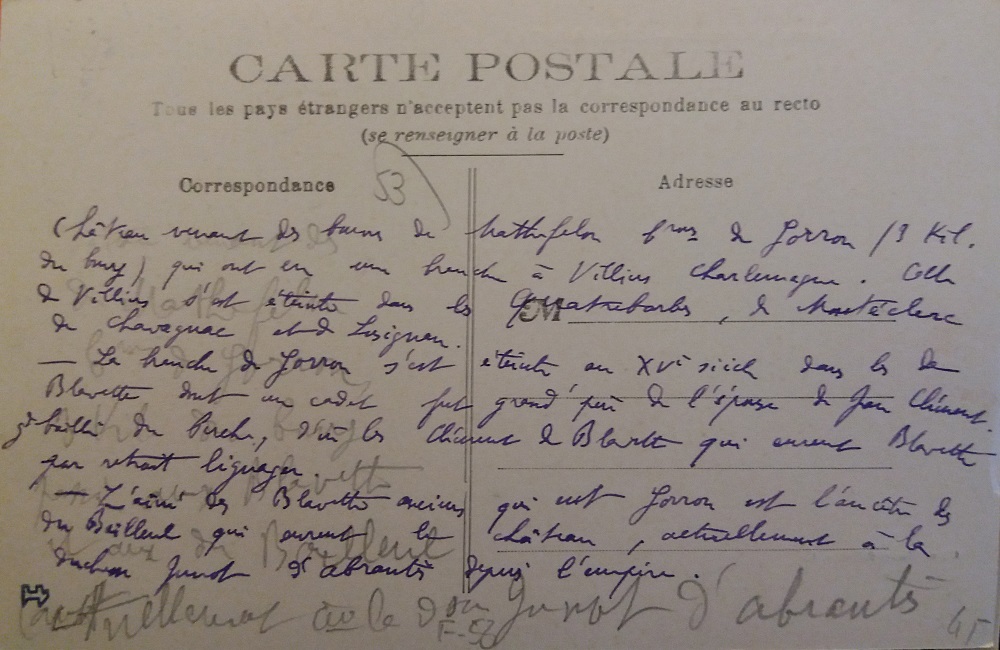 CARTE POSTALE
Tous les pays étrangers n'acceptent pas la correspondance au recto
(se renseigner à la poste)
Correspondance
53
Adresse
Château venant des barons de Mathefelon de Gorron /3 Kil.
du bourg) qui ont eu une branche à Villiers Charlemagne. Celle
de Villiers s'est éteinte dans les Quatrebarbes, de Montéclerc
de Chavagnac et de Lusignan.
— La branche de Gorron s'est éteinte au XVe siècle dans les de
Blavette dont un cadet fut grand père de l'épouse de Jean Clément.
bailli du Perche, d'où les Clément de Blavette qui eurent Blavette
par retrait lignager.
— L'aîné des Blavette qui eut Gorron est l'ancêtre des
du Bailleul qui eurent le château, actuellement à la
duchesse Junot d'Abrantès depuis l'empire.
du Bailleul
actuellement à la Junot d'abrantès
F-53